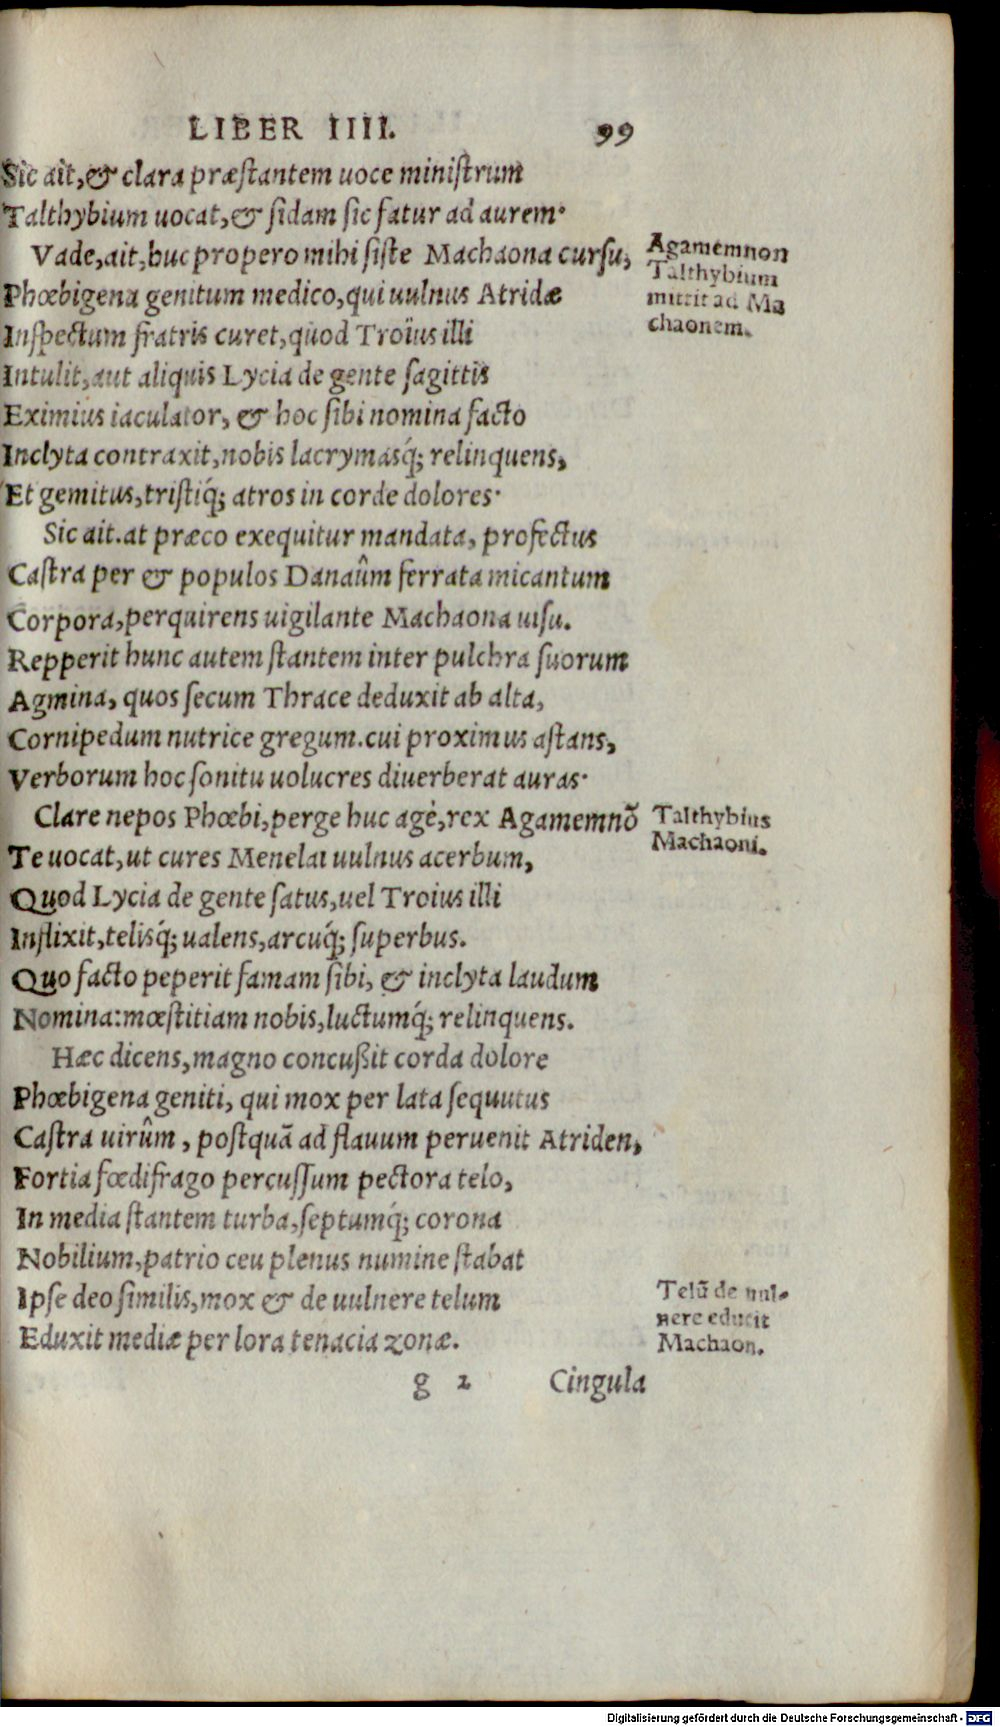 LIBER IIII. 99
Sic ait, & clara præstantem uoce ministrum
Talthybium uocat, & fidam sic fatur ad aurem.
Vade, ait, huc propero mihi siste Machaona cursu,
Phœbigena genitum medico, qui uulnus Atridæ
Inspectum fratris curet, quod Troius illi
Intulit, aut aliquis Lycia de gente sagittis
Eximius iaculator, & hoc sibi nomina facto
Inclyta contraxit, nobis lacrymasq́; relinquens,
Et gemitus, tristiq́; atros in corde dolores.
Sic ait. at præco exequitur mandata, profectus
Castra per & populos Danaûm ferrata micantum
Corpora, perquirens uigilante Machaona uisu.
Repperit hunc autem stantem inter pulchra suorum
Agmina, quos secum Thrace deduxit ab alta,
Cornipedum nutrice gregum. cui proximus astans,
Verborum hoc sonitu uolucres diuerberat auras.
Clare nepos Phœbi, perge huc age, rex Agamemnõ
Te uocat, ut cures Menelai uulnus acerbum,
Quod Lycia de gente satus, uel Troius illi
Inflixit, telisq́; ualens, arcuq́; superbus.
Quo facto peperit famam sibi, & inclyta laudum
Nomina: mœstitiam nobis, luctumq́; relinquens.
Hæc dicens, magno concußit corda dolore
Phœbigena geniti, qui mox per lata sequutus
Castra uirûm, postquã ad flauum peruenit Atriden,
Fortia fœdifrago percussum pectora telo,
In media stantem turba, septumq́; corona
Nobilium, patrio ceu plenus numine stabat
Ipse deo similis, mox & de uulnere telum
Eduxit mediæ per lora tenacia zonæ.
g 2 Cingula
Agamemnon
Talthybium
mittit ad Ma
chaonem.
Talthybius
Machaoni.
Telũ de uul-
nere educit
Machaon.
Digitalisierung gefördert durch die Deutsche Forschungsgemeinschaft - DFG